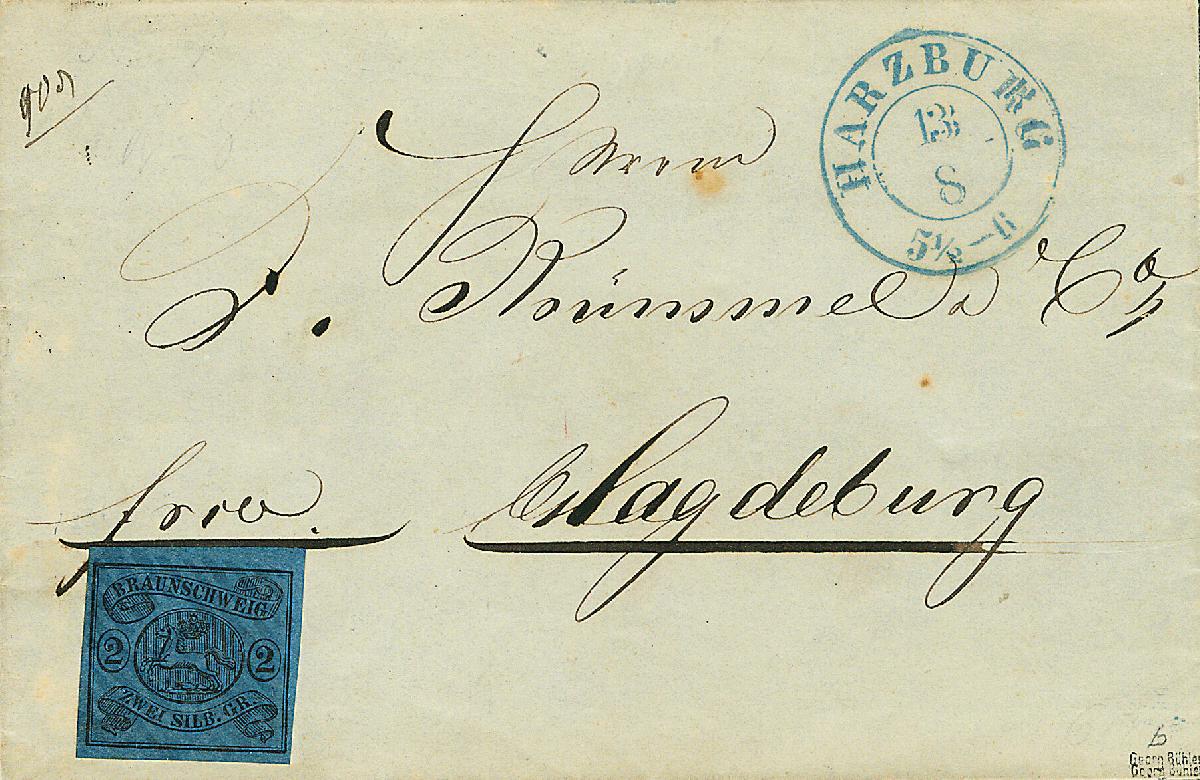 HARZBURG
13
8
5½—6
Herrn
F. Krümmel & Co
frco.
Magdeburg
BRAUNSCHWEIG
2 2
ZWEI SILB. GR.
b
Georg Bühler